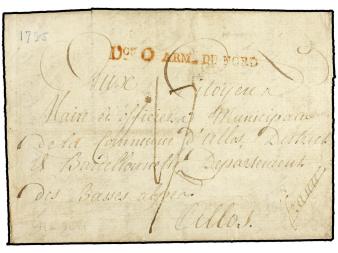 1795
Don O ARM. DU NORD
Aux Citoyens
Maire et officiers Municipaux
de la Commune d'allos, District
de Barcellonnette Departement
des Basses alpes
allos.